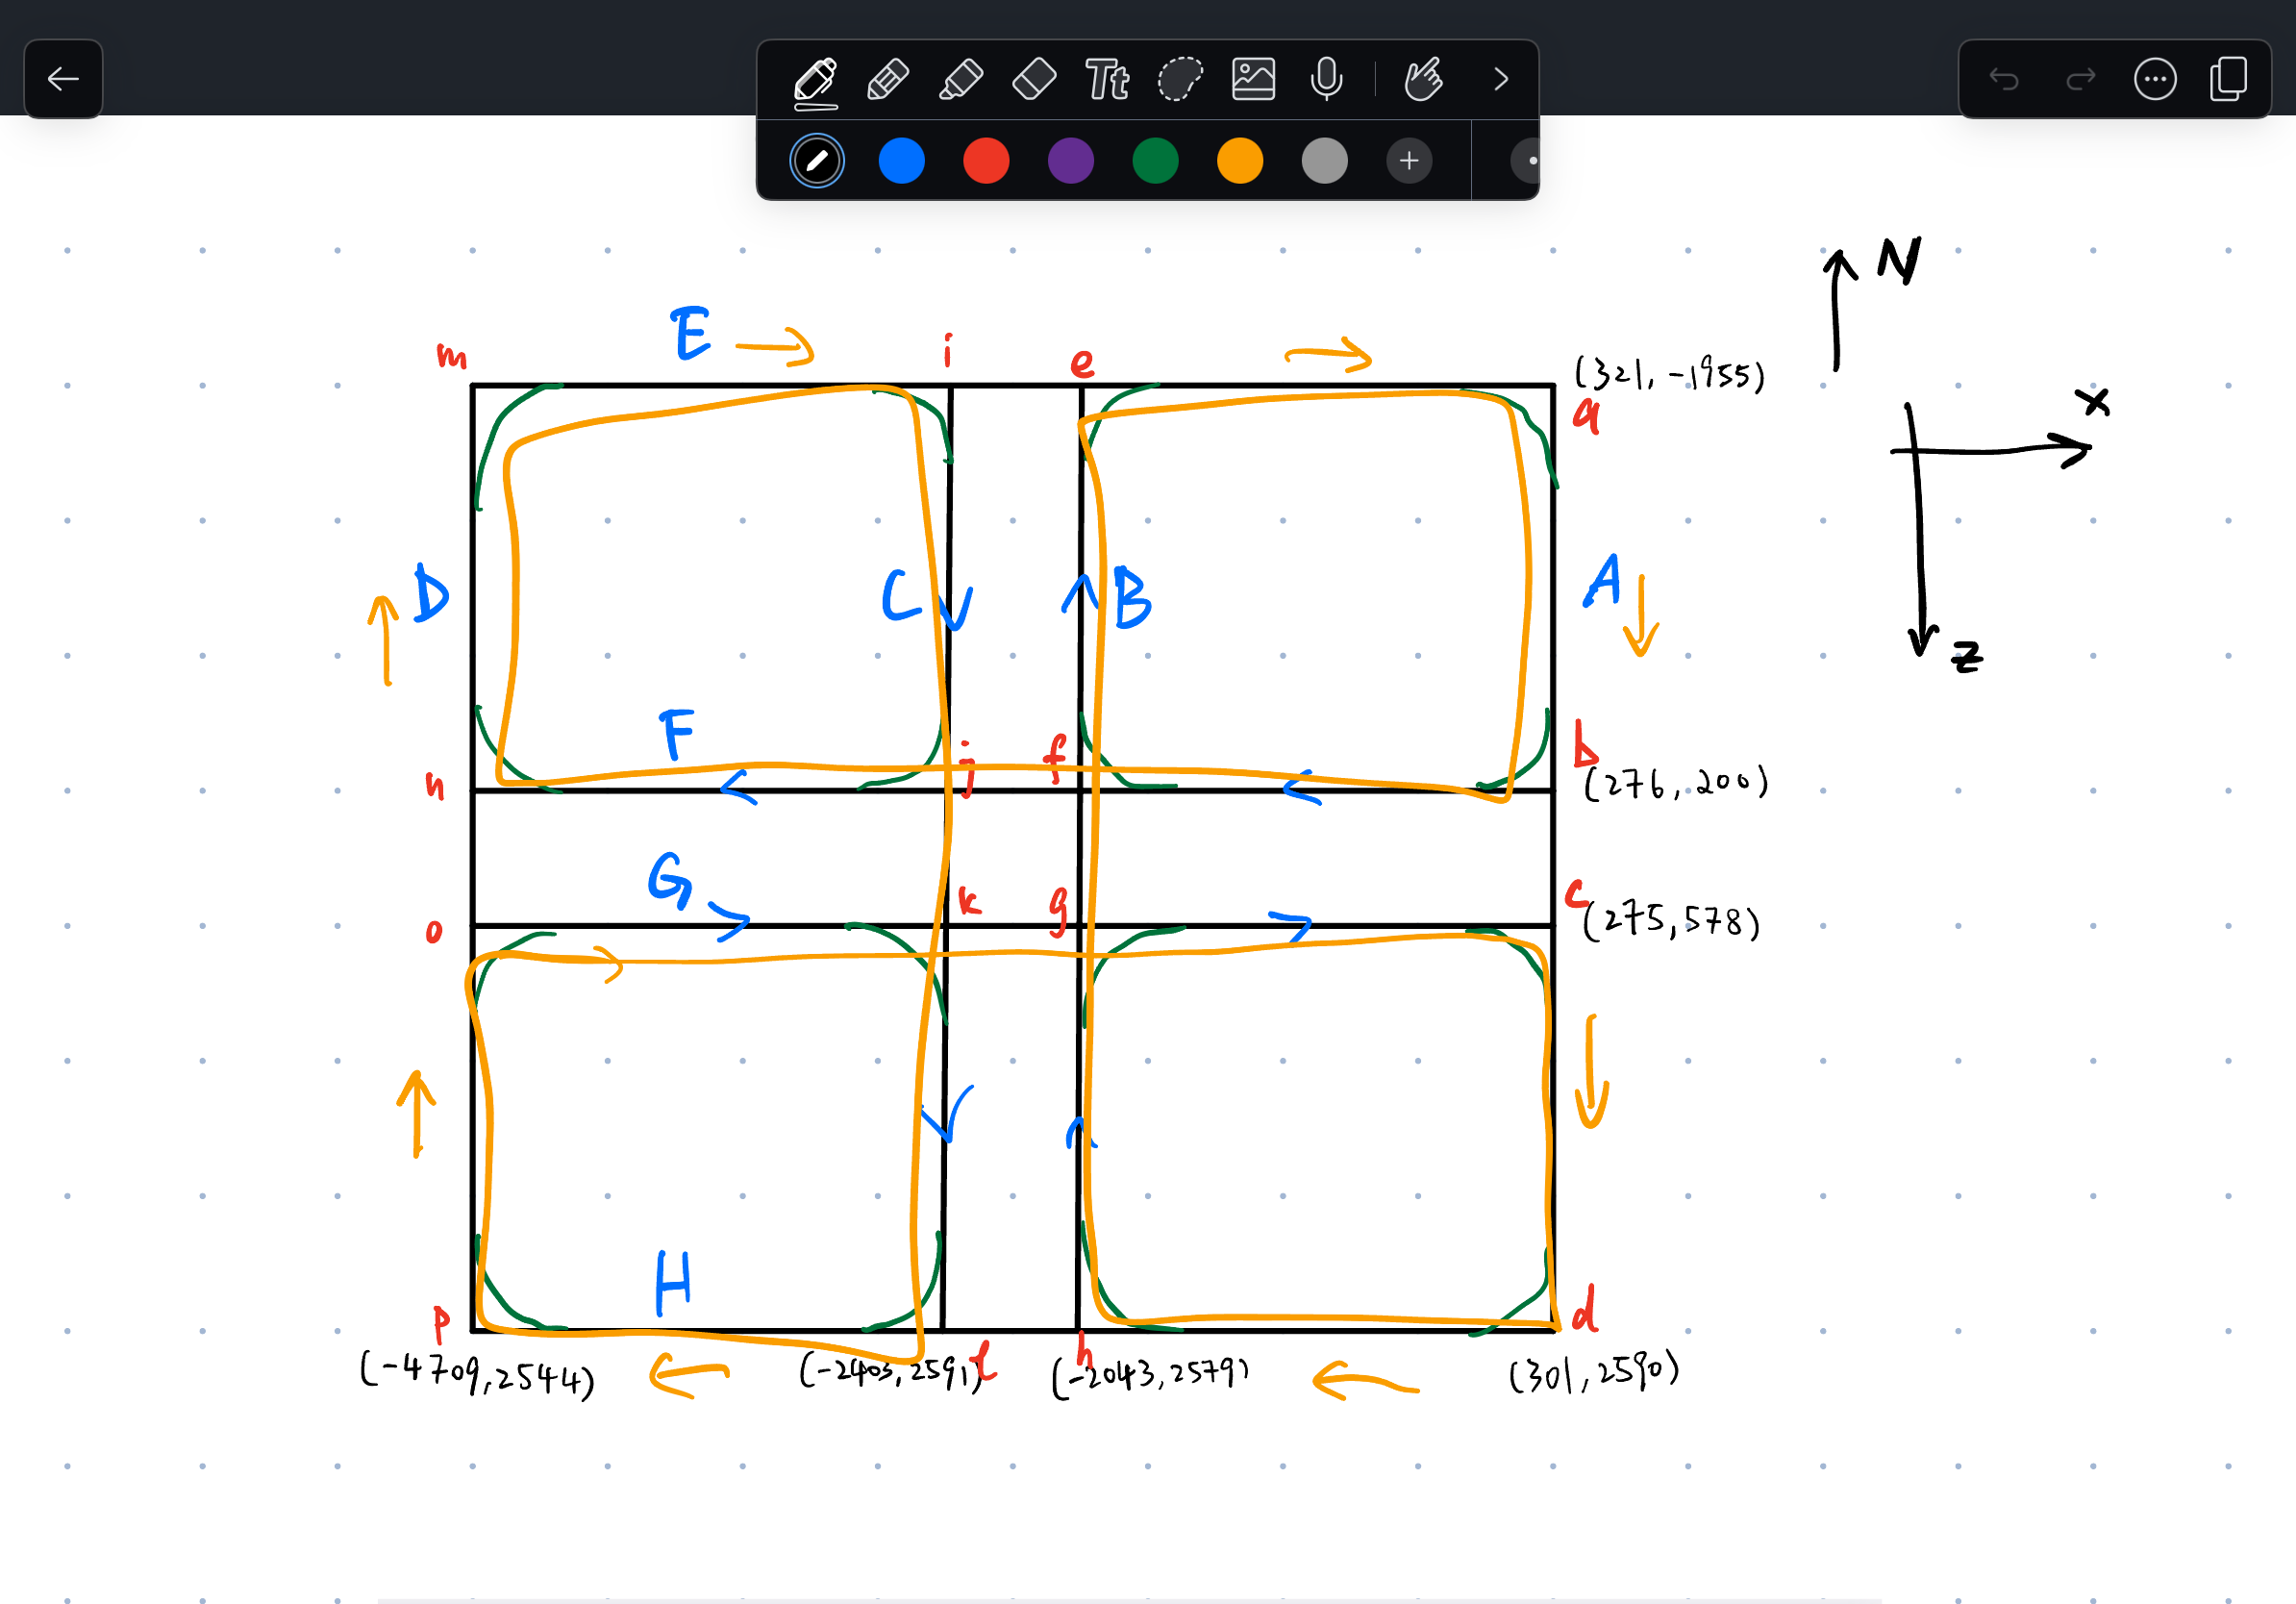 Tt
N
E
m
i
e
(321, -1955)
a
x
D
C
B
A
z
F
j
f
b
n
(276, 200)
G
k
g
c
o
(275, 578)
H
p
l
h
d
(-4709, 2544)
(-2403, 2591)
(-2043, 2579)
(301, 2590)